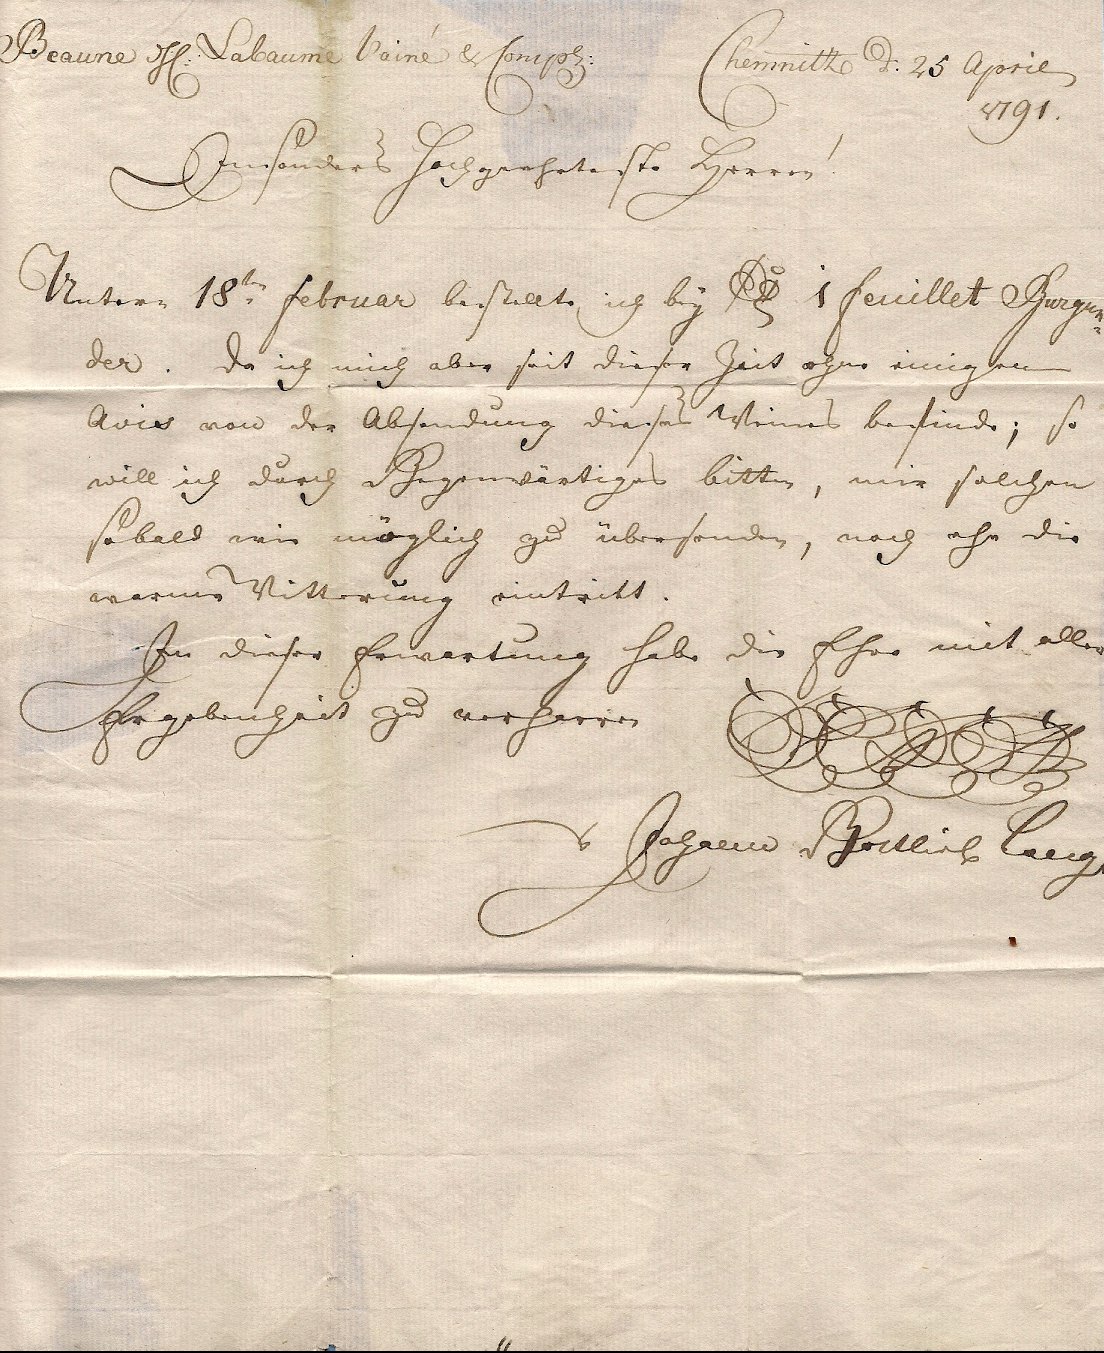 Beaune HH: Labaume l'ainé & Comp: Chemnitz d: 25 April
1791.
Insonders Hochgeehrteste Herren!
Untern 18tn. februar bestellte ich bey 1 feuillet Burgun=
der. Da ich mich aber seit dieser Zeit ohne einigen
Avis von der Absendung dieses Weines befinde; so
will ich durch Gegenwärtiges bitten, mir solchen
sobald wie möglich zu übersenden, noch ehe die
warme Witterung eintritt.
In dieser Erwartung habe die Ehre mit aller
Ergebenheit zu verharren
Johann Gottlieb